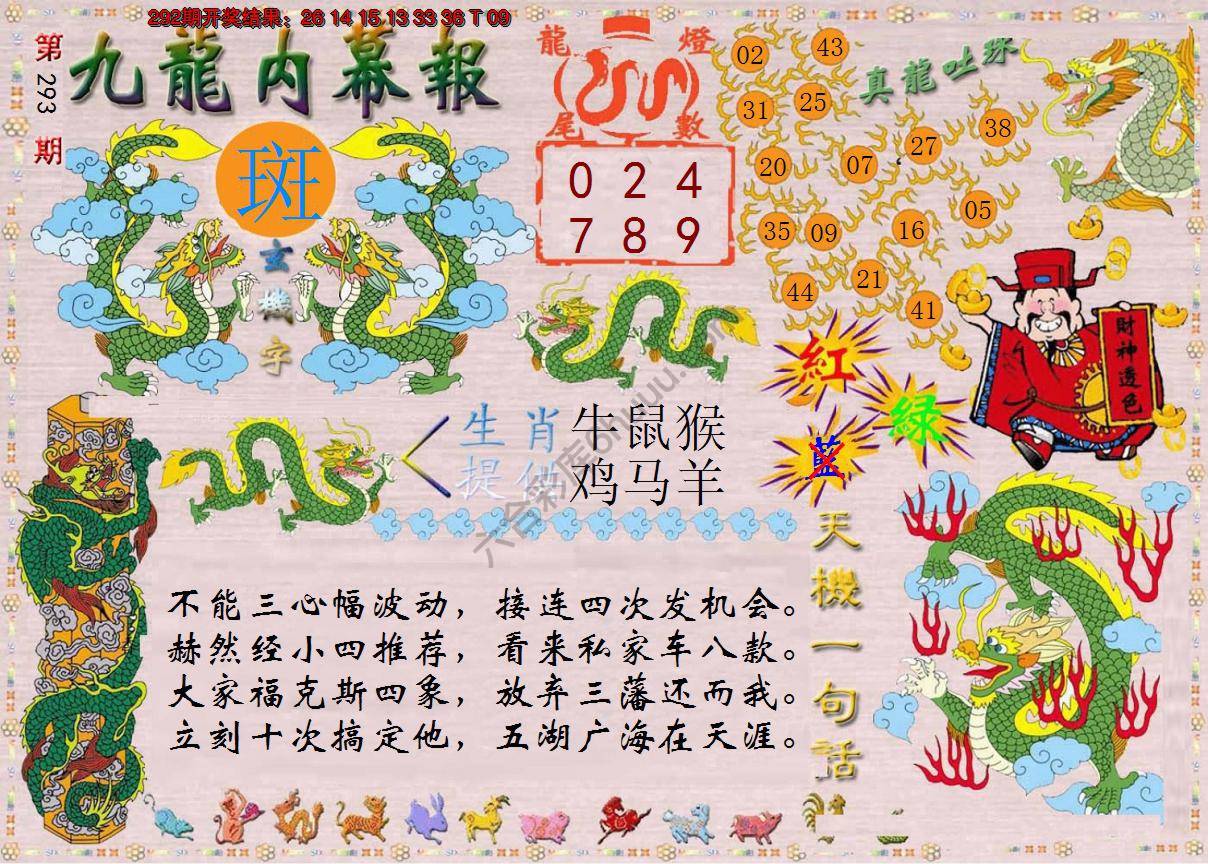 292期开奖结果：26 14 15 13 33 36 T 09
第293期
九龍内幕報
斑
玄機字
龍燈
尾數
0 2 4
7 8 9
真龍吐珠
02
43
31
25
20
07
27
38
35
09
16
05
44
21
41
財神透色
紅
綠
藍
生肖
提供
牛鼠猴
鸡马羊
天機一句話
不能三心幅波动，接连四次发机会。
赫然经小四推荐，看来私家车八款。
大家福克斯四象，放弃三藩还而我。
立刻十次搞定他，五湖广海在天涯。